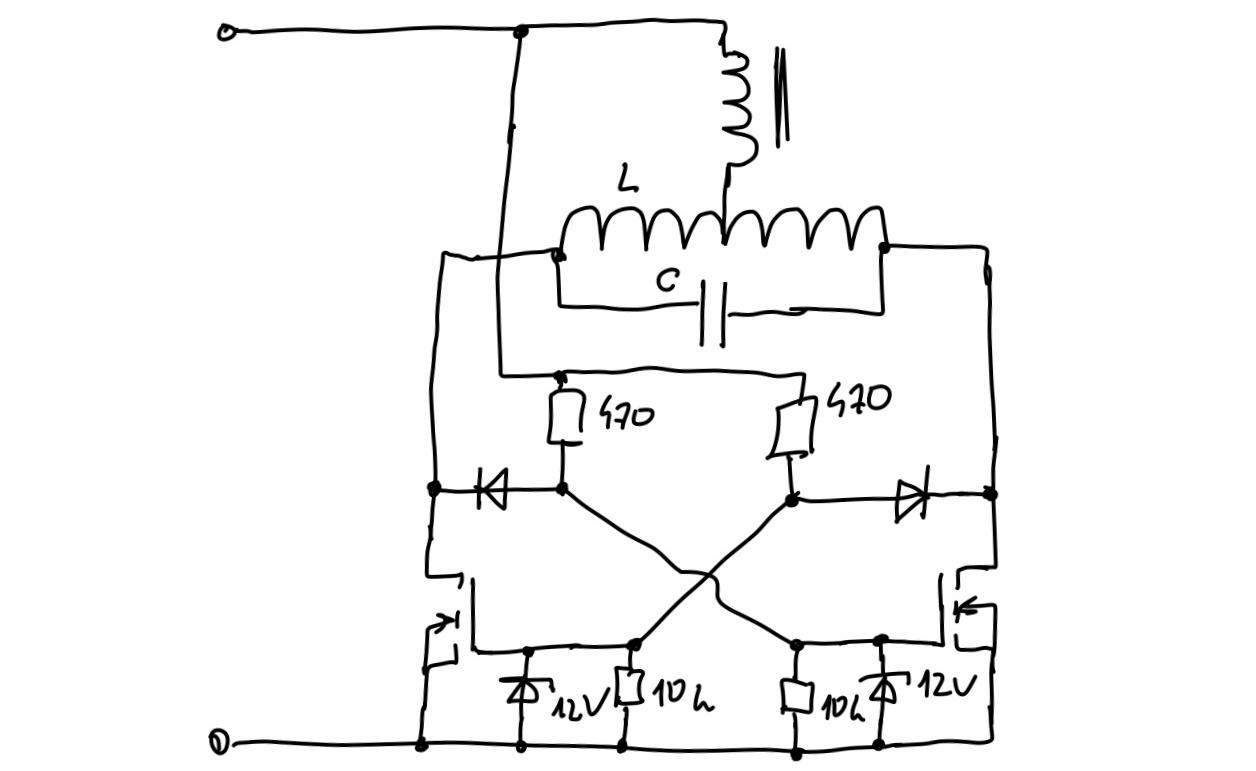 L
C
470
470
12V
10k
10k
12V